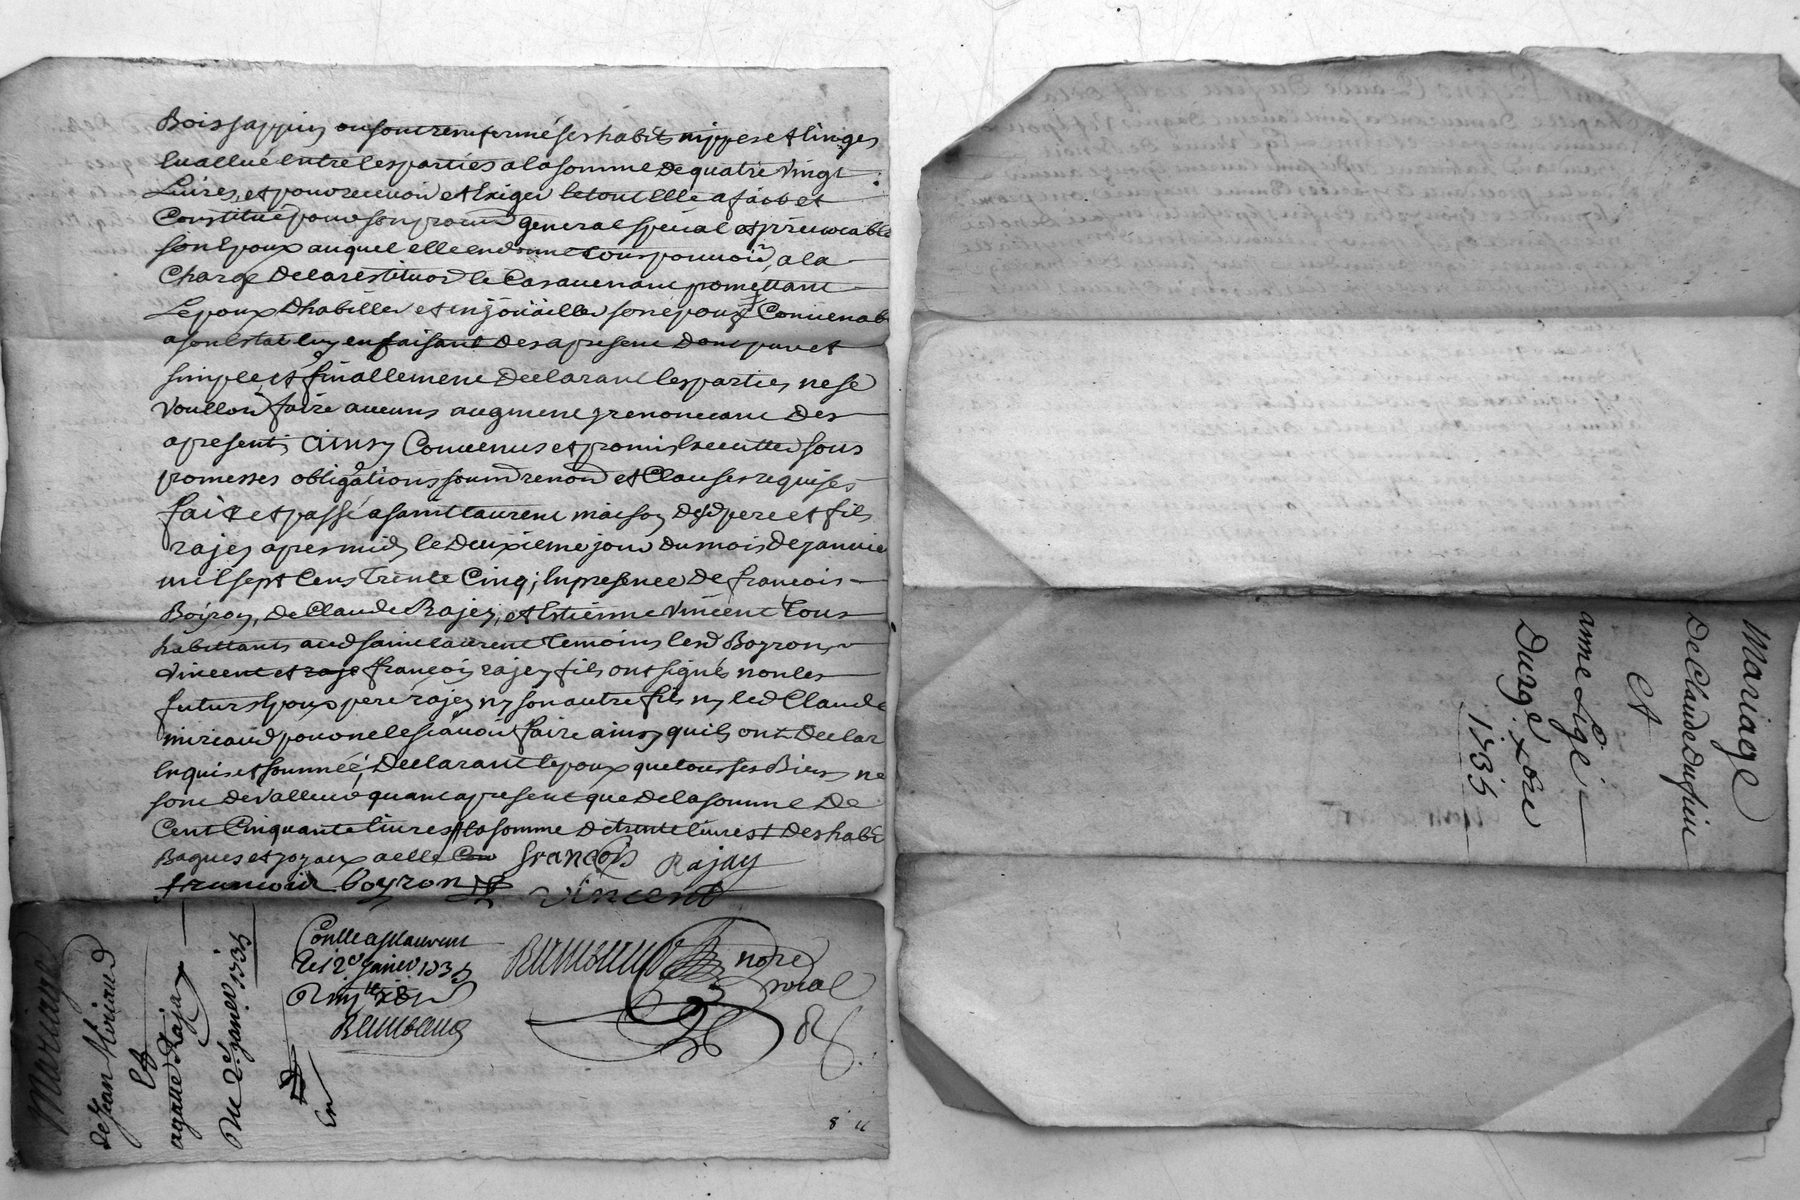 Bois sappin ou sont renfermé ses habits nippes et linges
Evallué entre les parties a la somme de quatre vingt
Livres, et pour recevoir et Exiger le tout Elle a fait et
Constitué pour son procur general special et irrevocable
son Epoux auquel elle en donne tous pouvoir, a la
Charge de la restituor le Cas avenant promettant
Lepoux dhabiller et enjoüailler son epouze Convenab
a son Estat luy en faisant des a present don pur et
simple, et finallement declarant les parties ne se
Voulloir faire aucuns augment y renoncant des
a present, ainsy Convenus et promis Executter sous
promesses obligations soum renon et Clauses requises
fait et passé a saint laurent maison desd pere et fils
rajey apres midy le deuxieme jour du mois de janvie
mil sept Cens Trente Cinq; En presence de francois
Boyron, de Claude Rajey, et Estienne Vincent Tous
habittants aud saint laurent Temoins lesd Boyron
Vincent et francois rajey fils ont signés non les
futurs Epoux pere rajey ny son autre fils ny led Claude
miriaud pour ne le scavoir faire ainsy quils ont declar
Enquis et sommée, Declarant lepoux que tous ses Biens ne
sont de Valleur quant a present que de la somme de
Cent Cinquante livres la somme de trente livres et des habi
Bagues et joyaux a elle
francois Rajay
francois boyron
vincent
Conlle a St laurent
le 12e janvier 1735
notre
roial
Mariage
de Jean Miriaud
Et
agatte Raja
Du 2e janier 1735
8
Mariage
De Claude Dufieu
Et
anne Ligé
1735